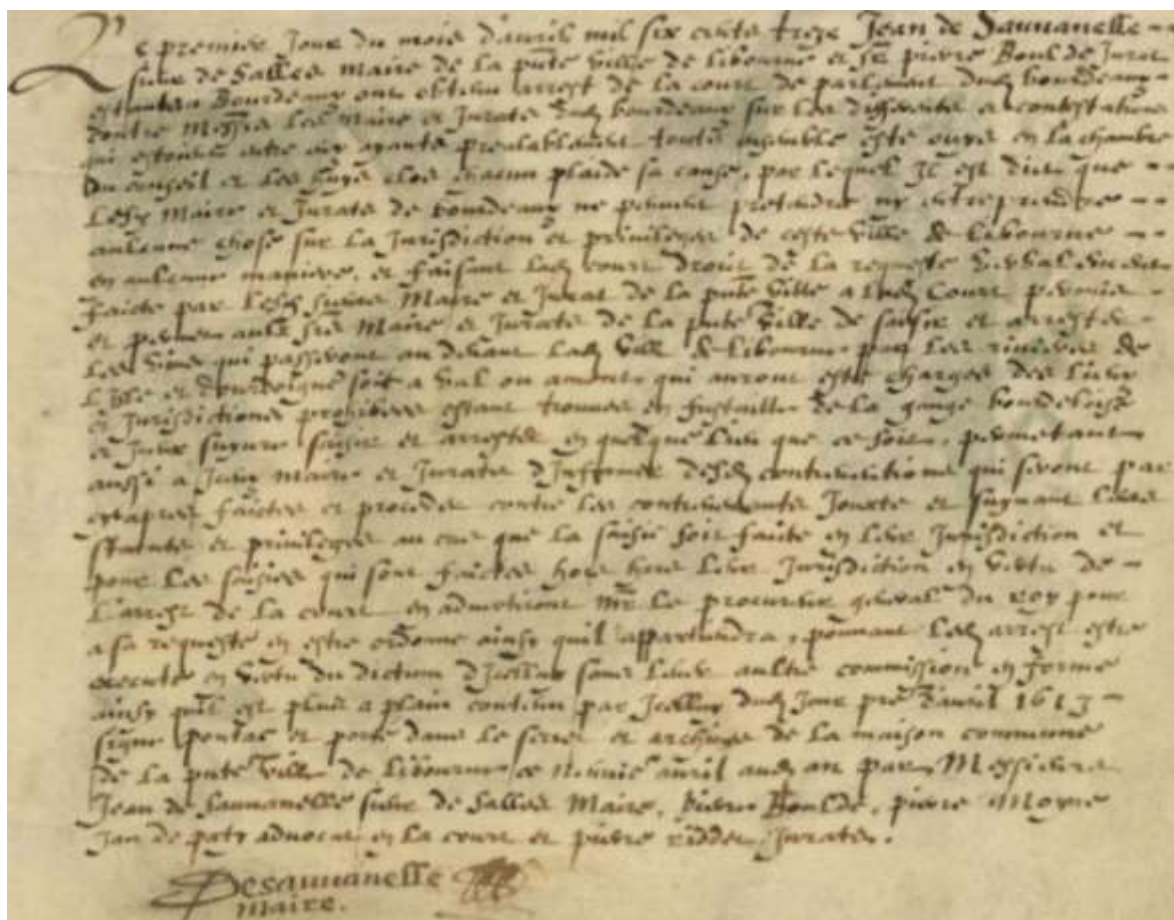 Le premier Jour du mois d'auril mil six cents treze Jean de Sauuanelle
sieur de Salles maire de la pnte ville de Libourne et sr pierre Boulde Jurat
estantz a Bourdeaux ont obtenu arrest de la court de parlement dud bourdeaux
contre Messrs les Maire et Jurats dud bourdeaux sur les differents et contestations
qui estoient entre eux ayants prealablement touts ensemble esté ouys en la chambre
du conseil et les huys clos chacun plaidé sa cause, par lequel Il est dict que
Lesd Maire et Jurats de bourdeaux ne peuuent pretendre ny entreprendre
aulcune chose sur la Jurisdiction et priuileges de ceste ville de Libourne
en aulcune maniere, et faisant lad court droit de la requeste verbalement
faicte par lesd sieurs Maire et Jurat de la pnte ville a lad Court permis
et permet aulx srs Maire et Jurats de la pnte ville de saisir et arrester
Les vins qui passeront au deuant lad ville de Libourne par les riuieres de
L'Isle et dourdoigne soit a val ou amont qui auront esté chargés des lieux
et Jurisdictions prohibees estant trouués en fustaille de la gauge bourdeloise
et Iceux saisir et arrester en quelque lieu que ce soit, permetant
aussi a Iceux maire et Jurats d'Informer desd contreuentions qui seront par
cy apres faictes et proceder contre les contreuenants Jouxte et suyuant leurs
statuts et priuileges au cas que la saisie soit faicte en leur Jurisdiction et
pour les saisies qui sont faictes hors hors leur Jurisdiction en vertu de
L'arrest de la court en aduertiront Mr le procureur general du roy pour
a sa requeste en estre ordonné ainsy quil appartiendra, pouuant led arrest estre
executé en vertu du dictum d'Icelluy sans leuer aultre commission en forme
ainsy quil est plus a plain contenu par Icelluy dud Jour pre d'auril 1613
signé pontac et porté dans le et archiues de la maison commune
de la pnte ville de Libourne ce auril aud an par Messieurs
Jean de Sauuanelle sieur de Salles Maire, pierre Boulde, pierre Moyne
Jan de paty aduocat en la court et pierre riddet Jurats.
Desauuanelle
maire.